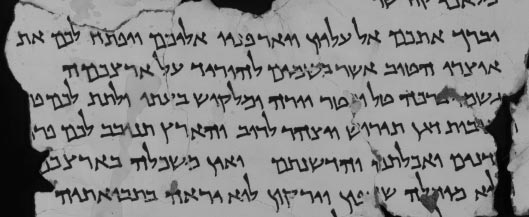 יברך אתכם אל עליון ויאר פניו אליכם ויפתח לכם את
אוצרו הטוב אשר בשמים להוריד על ארצכמה
גשמי ברכה טל ומטר יורה ומלקוש בעתו ולתת לכם
דגן תירוש ויצהר לרוב והארץ תנובב לכם
ואכלתם והדשנתם ואין משכלה בארצכם
מוחלה שדפון וירקון לוא יראה בתבואתיה